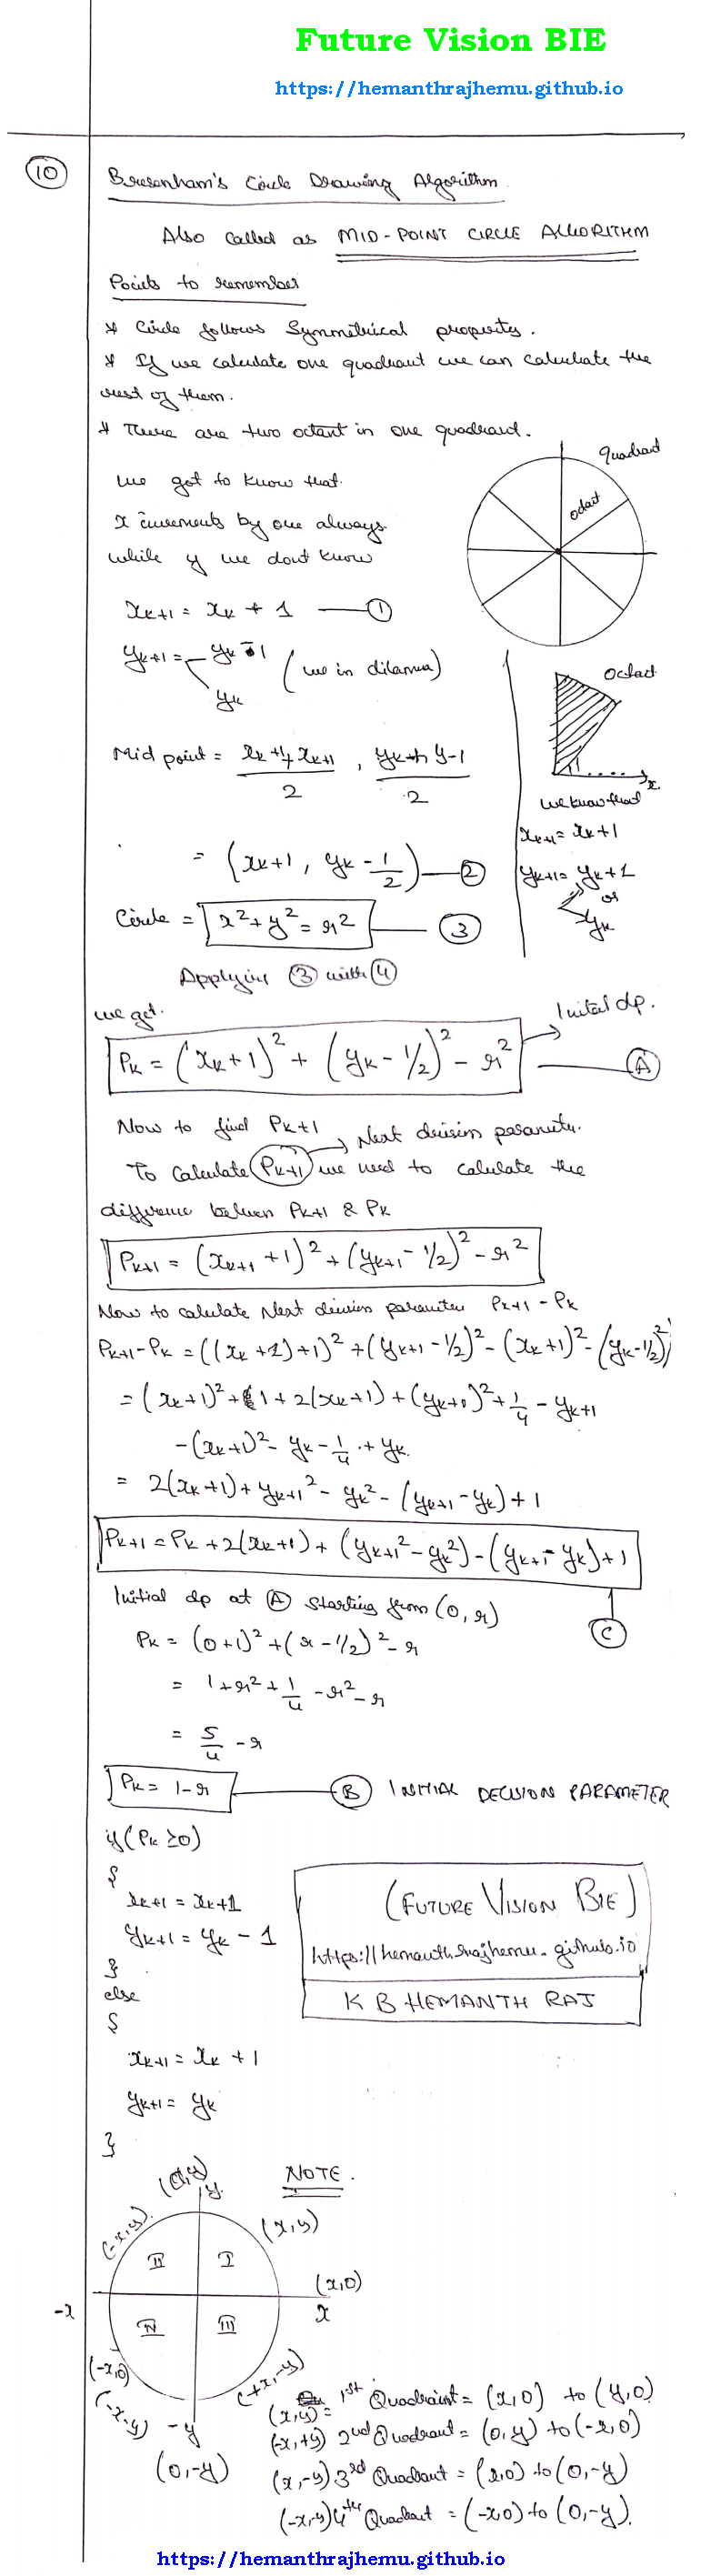 Future Vision BIE
https://hemanthrajhemu.github.io
10
Bresenham's Circle Drawing Algorithm.
Also called as MID-POINT CIRCLE ALGORITHM
Points to remember
* Circle follows Symmetrical property.
* If we calculate one quadrant we can calculate the
rest of them.
* There are two octant in one quadrant.
quadrant
octant
we got to know that
x increments by one always
while y we dont know
xk+1 = xk + 1 — 1
yk+1 = yk - 1
yk
(we in dilemma)
Octant
x
we know that
xk+1 = xk+1
yk+1 = yk+1
or
yk
Mid point = , 
2 2
= (xk+1, yk - 1/2) — 2
Circle = x² + y² = r² — 3
Applying 3 with 4
we get.
Pk = (xk+1)² + (yk - 1/2)² - r²
Inital dp.
A
Now to find Pk+1
Next decision parameter.
To Calculate Pk+1 we need to calculate the
difference between Pk+1 & Pk
Pk+1 = (xk+1 + 1)² + (yk+1 - 1/2)² - r²
Now to calculate Next decision parameter Pk+1 - Pk
Pk+1 - Pk = ((xk+1)+1)² + (yk+1 - 1/2)² - (xk+1)² - (yk-1/2)²
= (xk+1)² + 1 + 2(xk+1) + (yk+1)² + 1/4 - yk+1
- (xk+1)² - yk - 1/4 + yk
= 2(xk+1) + yk+1² - yk² - (yk+1 - yk) + 1
Pk+1 = Pk + 2(xk+1) + (yk+1² - yk²) - (yk+1 - yk) + 1
C
Initial dp at A starting from (0, r)
Pk = (0+1)² + (r - 1/2)² - r
= 1 + r² + 1/4 - r² - r
= 5/4 - r
Pk = 1-r — B INITIAL DECISION PARAMETER
if(Pk ≥0)
{
xk+1 = xk+1
yk+1 = yk - 1
}
else
{
xk+1 = xk + 1
yk+1 = yk
}
(FUTURE VISION BIE)
https://hemanthrajhemu.github.io
K B HEMANTH RAJ
NOTE.
(0,y)
y
(-x,y)
(x,y)
II I
(x,0)
-x x
IV III
(-x,0)
(-x,-y)
(+x,-y)
-y
(0,-y)
(x,y)= 1st Quadraint = (x,0) to (y,0)
(-x,+y) 2nd Quadrant = (0,y) to (-x,0)
(x,-y) 3rd Quadrant = (x,0) to (0,-y)
(-x,-y) 4th Quadrant = (-x,0) to (0,-y).
https://hemanthrajhemu.github.io